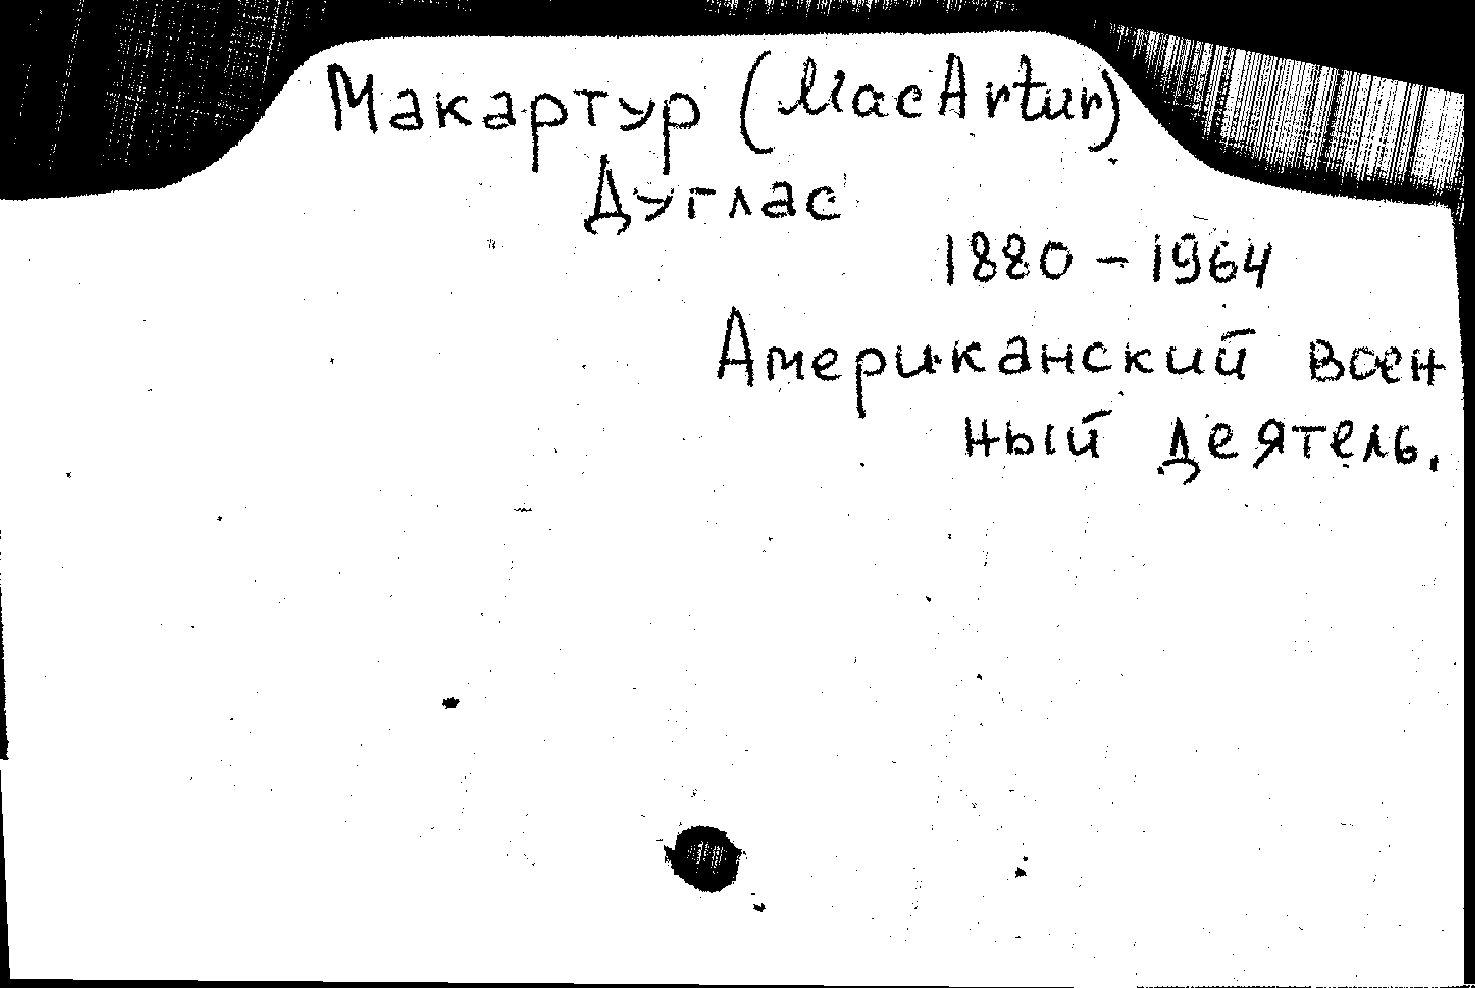 Макартур (MacArtur)
Дуглас
1880 – 1964
Американский воен
ный деятель.